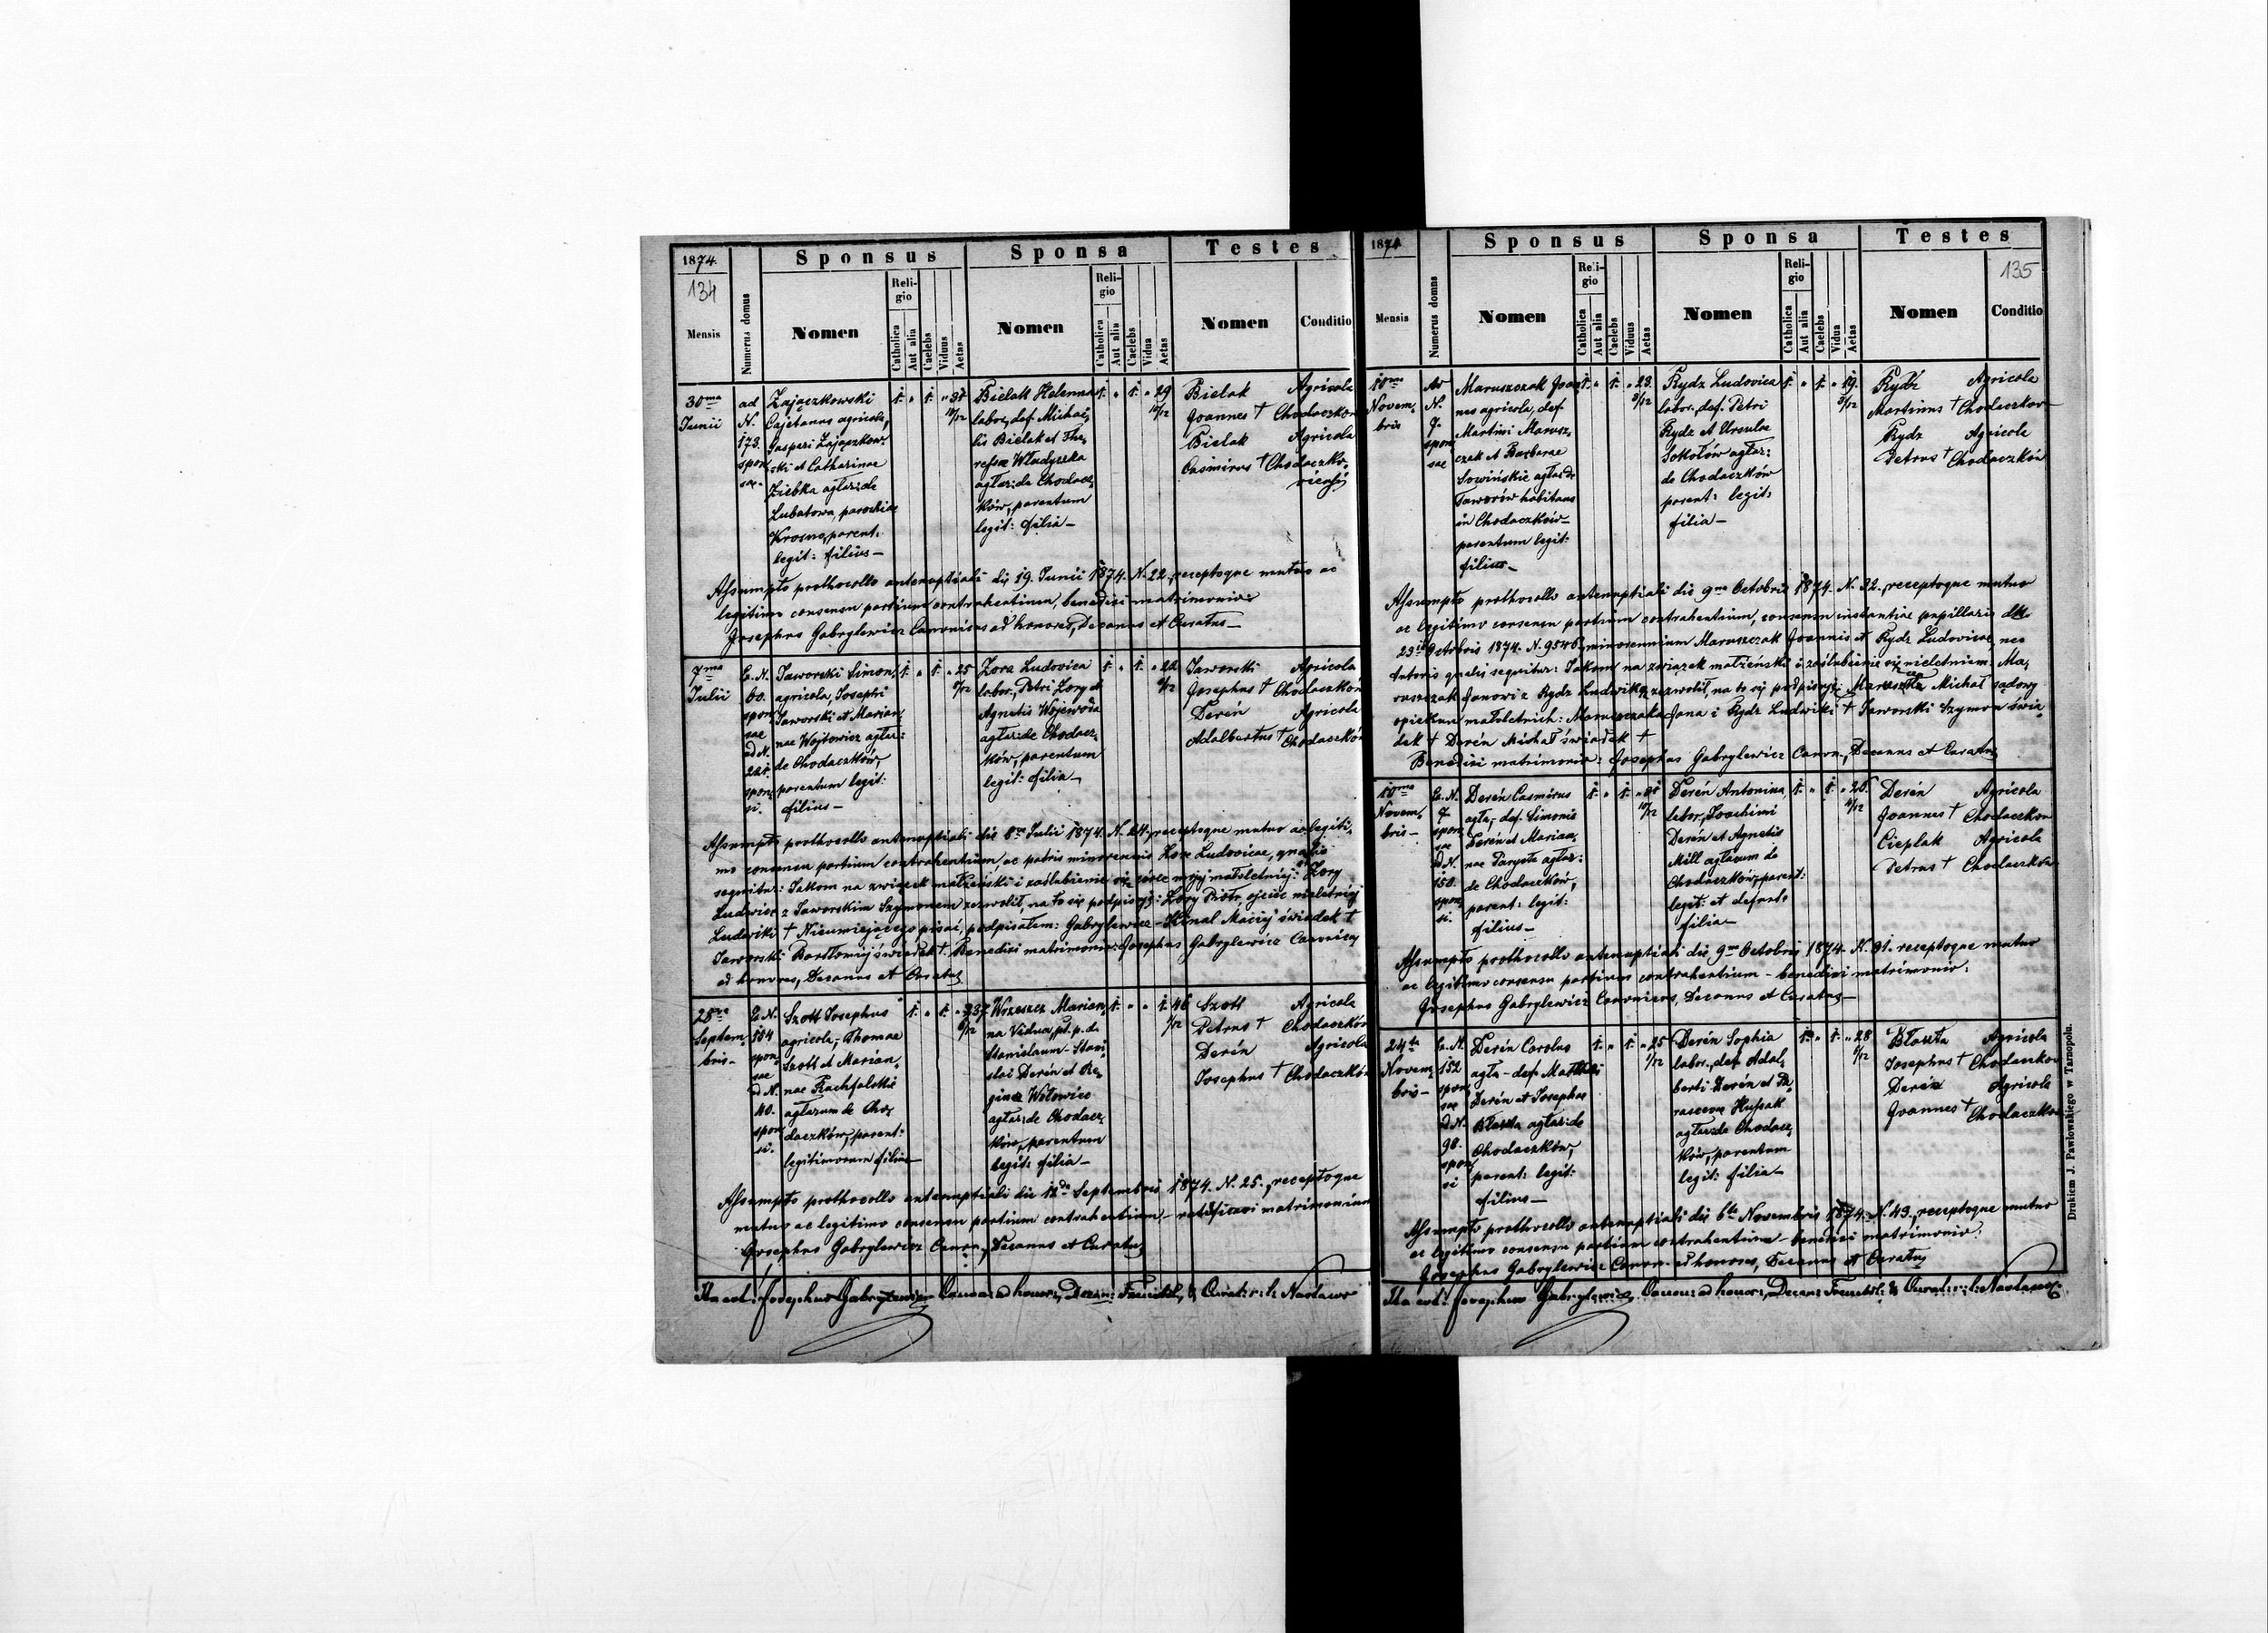 1874.
134
Mensis
Numerus domus
Sponsus
Nomen
Religio
Catholica
Aut alia
Caelebs
Viduus
Aetas
Sponsa
Nomen
Religio
Catholica
Aut alia
Caelebs
Vidua
Aetas
Testes
Nomen
Conditio
30ma
Junii
ad
N.
173.
spon
sae.
Zajączkowski
Cajetanus agricola,
Gaspari Zajączkow
ski et Catharinae
Ziebka agłar: de
Lubatowa, parochiae
Krosno, parent:
legit: filius —
1. " 1. " 31 10/12
Bielak Helenna
labor, def. Michae
lis Bielak et The
resae Władyszka
agłar: de Chodacz
ków, parentum
legit: filia —
1. " 1. " 29 10/12
Bielak Agricola
Joannes † Chodaczkow
Bielak Agricola
Casimirus † Chodaczko
viensis
Assumpto prothocollo antenuptiali die 19. Junii 1874. N. 22, receptoque mutuo ac
legitimo consensu partium contrahentium, benedixi matrimonio:
Josephus Gabrylewicz Canonicus ad honores, Decanus et Curatus —
7ma
Julii
E. N.
60.
spon
sae
ad N.
221.
spon
si.
Jaworski Simon,
agricola, Josephi
Jaworski et Marian
nae Wojtowicz agłar:
de Chodaczków,
parentum legit:
filius —
1. " 1. " 25
Zora Ludovica
labor., Petri Zory et
Agnetis Wojewoda
agłar: de Chodacz
ków, parentum
legit: filia —
1. " 1. " 22
Jaworski Agricola
Josephus † Chodaczków
Dereń Agricola
Adalbertus † Chodaczków
Assumpto prothocollo antenuptiali die 1ma Julii 1874. N. 24, receptoque mutuo ac legiti
mo consensu partium contrahentium ac patris minorennis Zora Ludovicae, qualis
sequitur: Jakom na związek małżeński i zaślubienie się córce mojej małoletniej: Zory
Ludwice z Jaworskim Szymonem zezwolił, na to się podpisuję: Zory Piotr, ojciec nieletniej
Ludwiki † Nieumiejącego pisać, podpisałem: Gabrylewicz — Kinal Maciej świadek †
Jaworski Bartłomiej świadek †. Benedixi matrimonio: Josephus Gabrylewicz Canonicus
ad honores, Decanus et Curatus
28va
Septem
bris —
E. N.
154
spon
sae
ad N.
40.
spon
si.
Szott Josephus
agricola, Thomae
Szott et Marian
nae Rachfalska
agłarum de Cho
daczków, parent:
legitimorum filius —
1. " 1. " 37 6/12
Wrzeszcz Marian
na Vidua, pt. p. d.
Stanislaum — Stani
slai Dereń et Re
ginae Wołowiec
agłar: de Chodacz
ków, parentum
legit: filia —
1. " " 1. 46
Szott Agricola
Petrus † Chodaczków
Dereń Agricola
Josephus † Chodaczków
Assumpto prothocollo antenuptiali die 12da Septembris 1874. N. 25., receptoque
mutuo ac legitimo consensu partium contrahentium — ratificavi matrimonium
Josephus Gabrylewicz Canon., Decanus et Curatus
Ita est: Josephus Gabrylewicz Canon: ad honor:, Decan: & Curat: r: l: Nastasov
1874
135
Mensis
Numerus domus
Sponsus
Nomen
Religio
Catholica
Aut alia
Caelebs
Viduus
Aetas
Sponsa
Nomen
Religio
Catholica
Aut alia
Caelebs
Vidua
Aetas
Testes
Nomen
Conditio
10ma
Novem
bris
Ad
N.
7.
spon
sae
Maruszczak Joan
nes agricola, def.
Martini Marusz
czak et Barbarae
Sowińskie agłar: de
Jaworów habitans
in Chodaczków —
parentum legit:
filius —
1. " 1. " 23.
Rydz Ludovica
labor., def. Petri
Rydz et Ursulae
Sokołów agłar:
de Chodaczków
parent: legit:
filia —
1. " 1. " 19.
Rydz Agricola
Martinus † Chodaczkow
Rydz Agricola
Petrus † Chodaczków
Assumpto prothocollo antenuptiali die 9na Octobris 1874. N. 32, receptoque mutuo
ac legitimo consensu partium contrahentium, consensu instantiae pupillaris dtt
Octobris 1874. N. 9546, minorennium Maruszczak Joannis et Rydz Ludovicae, nec
tutoris qualis sequitur: Jakom na związek małżeński i zaślubienie się nieletniem: Ma
ruszczak Janowi z Rydz Ludwiką zezwolił, na to się podpisuję: Michał sądowy
opiekun małoletnich: Maruszczaka Jana i Rydz Ludwiki † Jaworski Szymon świa
dek † Dereń Michał świadek †
Benedixi matrimonio: Josephus Gabrylewicz Canon., Decanus et Curatus
10ma
Novem
bris —
E. N.
7
spon
sae
ad N.
150.
spon
si.
Dereń Casmirus
agła, def. Simonis
Dereń et Marian
nae Paryste agłar:
de Chodaczków,
parent: legit:
filius —
1. " 1. " 31 10/12
Dereń Antonina,
labor., Joachimi
Dereń et Agnetis
Mill agłarum de
Chodaczków, parent:
legit: et defunt:
filia —
1. " 1. " 20.
Dereń Agricola
Joannes † Chodaczków
Cieplak Agricola
Petrus † Chodaczków
Assumpto prothocollo antenuptiali die 9na Octobris 1874. N. 31. receptoque mutuo
ac legitimo consensu partium contrahentium — benedixi matrimonio:
Josephus Gabrylewicz Canonicus, Decanus et Curatus —
24ta
Novem
bris —
E. N.
152
spon
sae
ad N.
90.
spon
si
Dereń Carolus
agła — def. Matthaei
Dereń et Josephae
Błaszta agłar: de
Chodaczków,
parent: legit:
filius —
1. " 1. " 25
Dereń Sophia
labor., def. Adal
berti Dereń et Pa
rascevae Hussak
agłar: de Chodacz
ków, parentum
legit: filia —
1. " 1. " 28
Błaszta Agricola
Josephus † Chodaczkow
Dereń Agricola
Joannes † Chodaczkow
Assumpto prothocollo antenuptiali die 6ta Novembris 1874. N. 43, receptoque mutuo
ac legitimo consensu partium contrahentium — benedixi matrimonio:
Josephus Gabrylewicz Canon. ad honores, Decanus et Curatus
Ita est: Josephus Gabrylewicz Canon: ad honor:, Decan: & Curat: r: l: Nastasov
Drukiem J. Pawłowskiego w Tarnopolu.